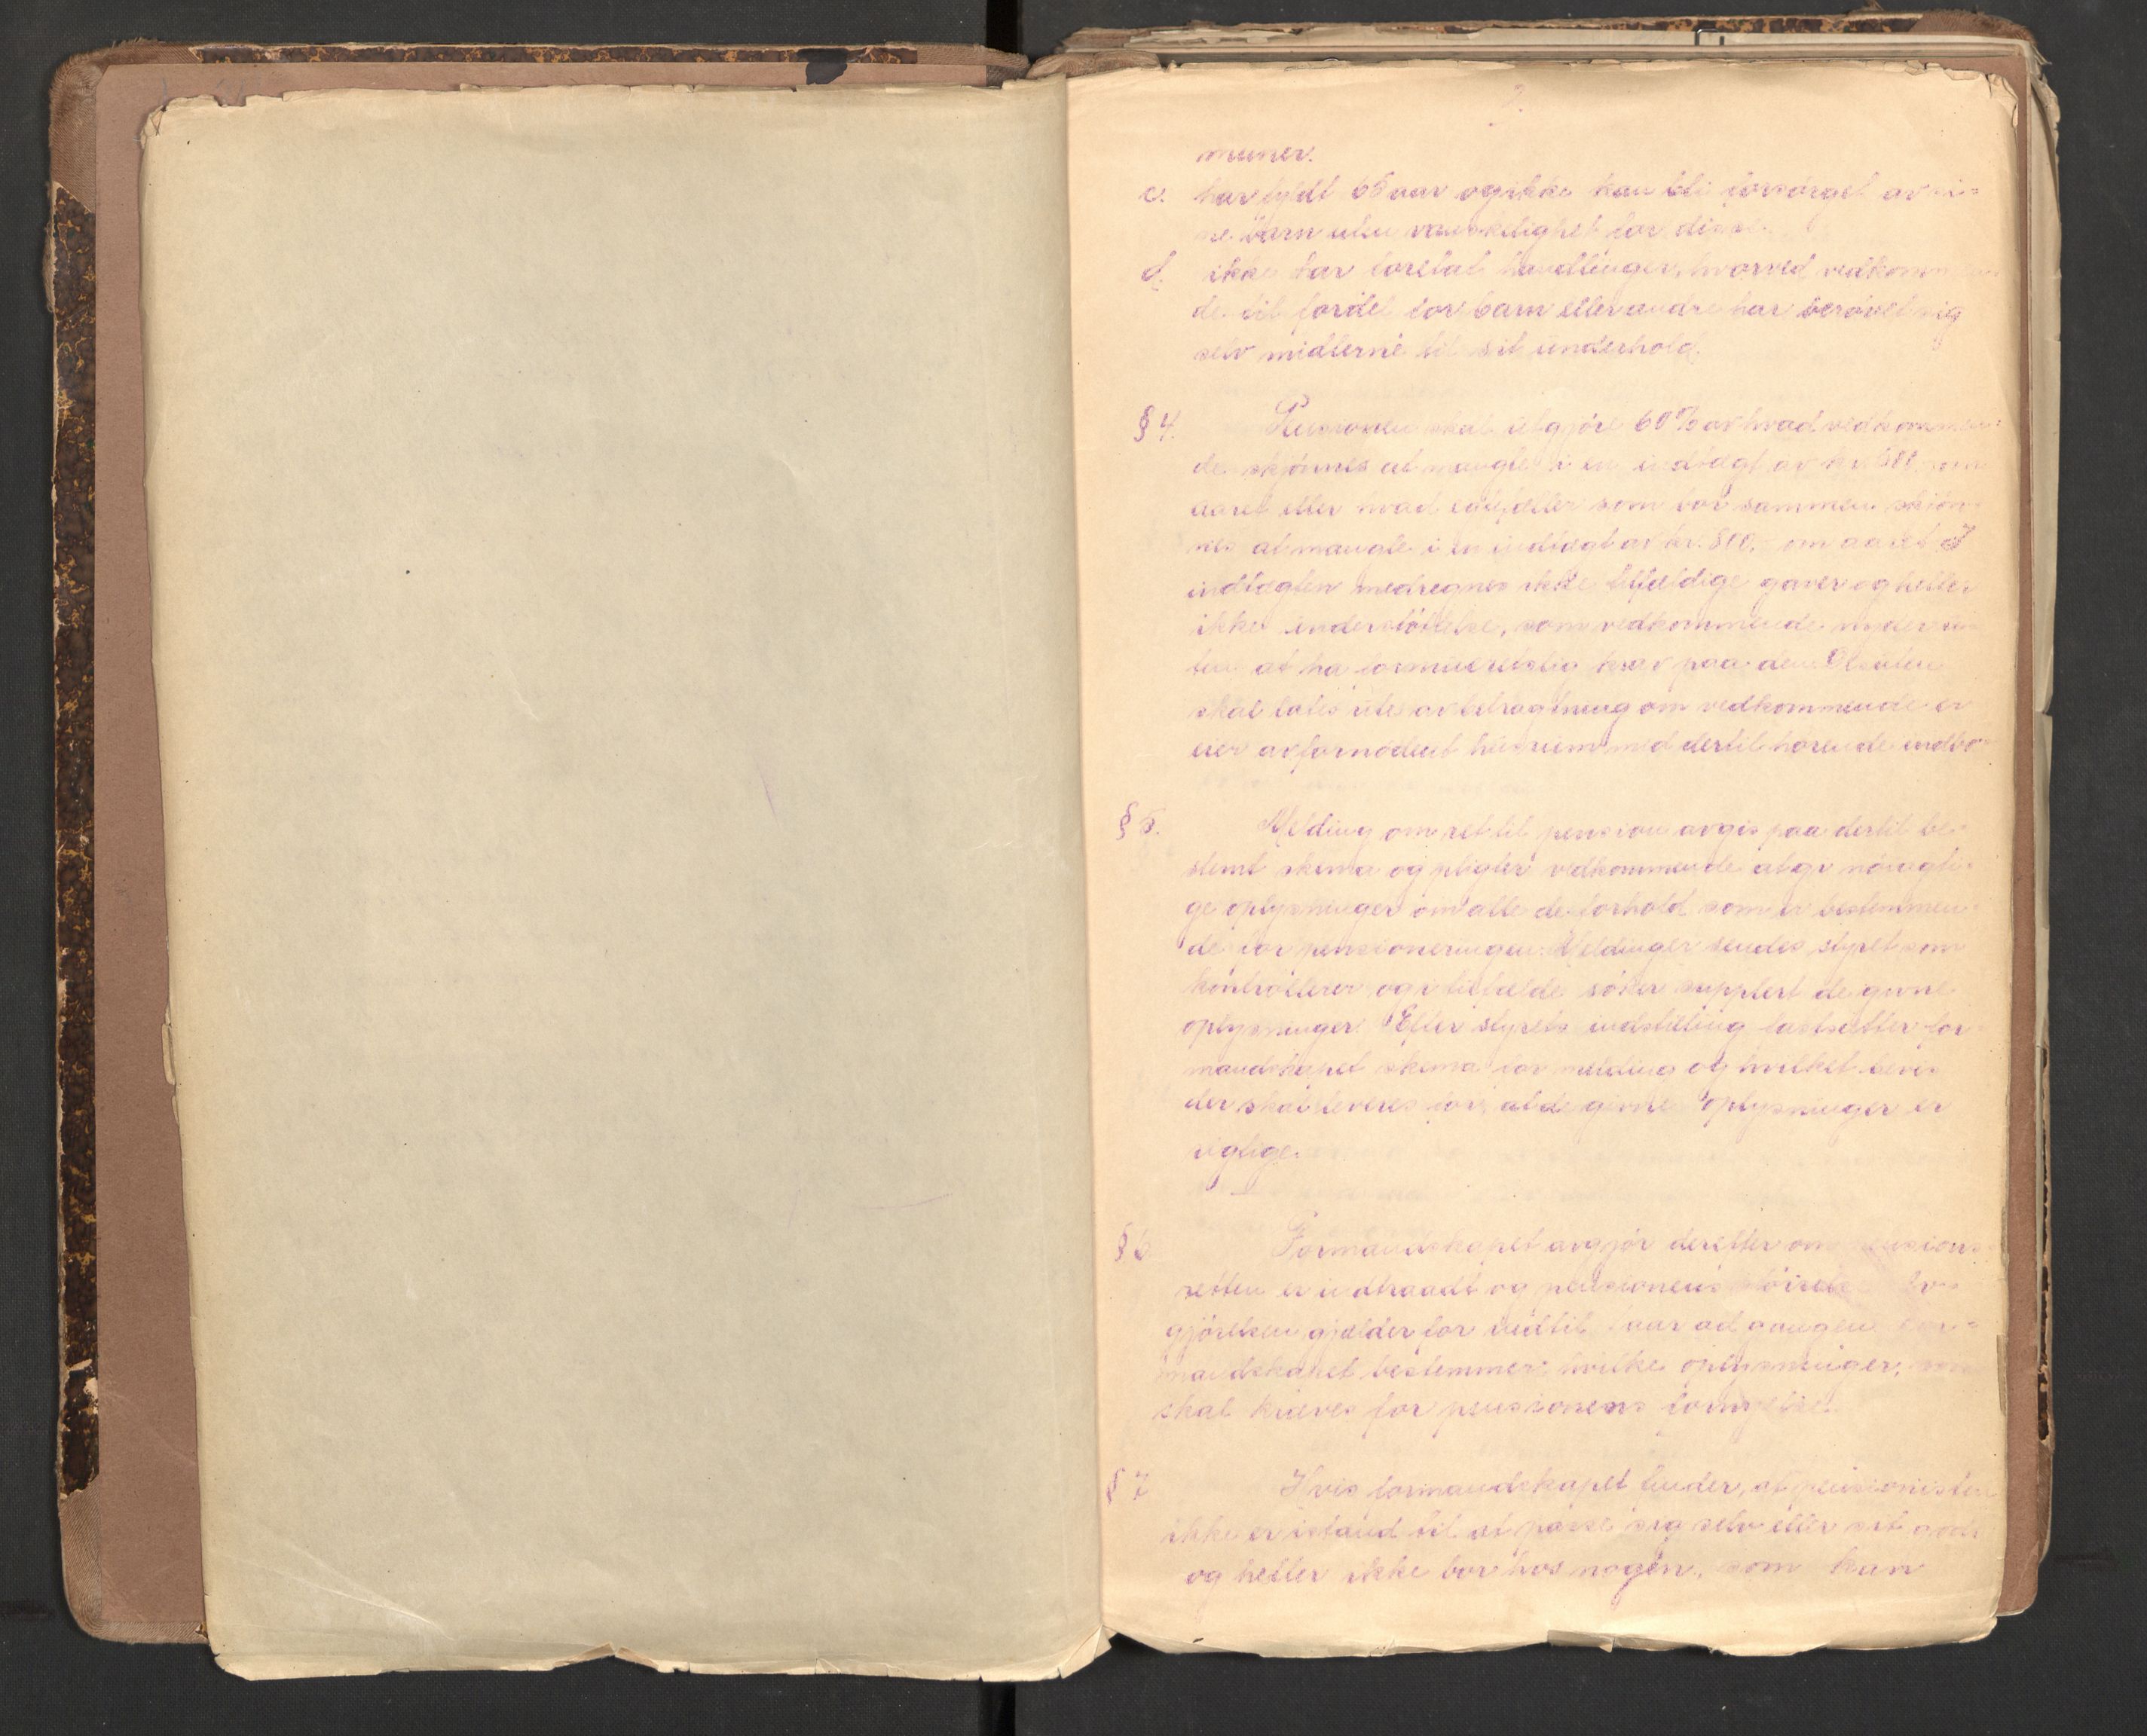 2.
muner.
c. har fyldt 65 aar og ikke kan bli forsørget av si=
ne barn uten vanskelighet for disse.
d. ikke har foretat handlinger, hvorved vedkommen
de til fordel for barn eller andre har berøvet sig
selv midlerne til sit underhold.
§ 4. Pensionen skal utgjøre 60 % av hvad vedkommen=
de skjønnes at mangle i en indtægt av kr. om
aaret eller hvad egtefæller som bor sammen skjøn-
nes at mangle i en indtægt av kr. 800, om aaret I
indtægten medregnes ikke tilfældige gaver og heller
ikke understøttelse, som vedkommende nyder u-
ten at ha formueretslig krav paa den.
skal lates ute av betragtning om vedkommende er
eier av fornødent husrum med dertil hørende indbo
§ 5. Melding om ret til pension avgis paa dertil be-
stemt skema og pligter vedkommende at gi nøiagti-
ge oplysninger om alle de forhold som er bestemmen-
de for pensioneringen. Meldinger sendes styret som
kontrollerer og i tilfælde søker supplert de givne
oplysninger. Efter styrets indstilling fastsætter for
mandskapet skema for melding og hvilket bevis
der skal leveres for, at de givne oplysninger er
rigtige.
§ 6 Formandskapet avgjør derefter om pensions
retten er indtraadt og pensionens støirelse Av-
gjørelsen gjælder for indtil aar ad gangen For=
mandskapet bestemmer hvilke oplysninger, som
skal kræves for pensionens fornyelse.
§ 7 Hvis formandskapet finder, at pensionisten
ikke er istand til at passe sig selv eller sit gods
og heller ikke bor hos nogen, som kan